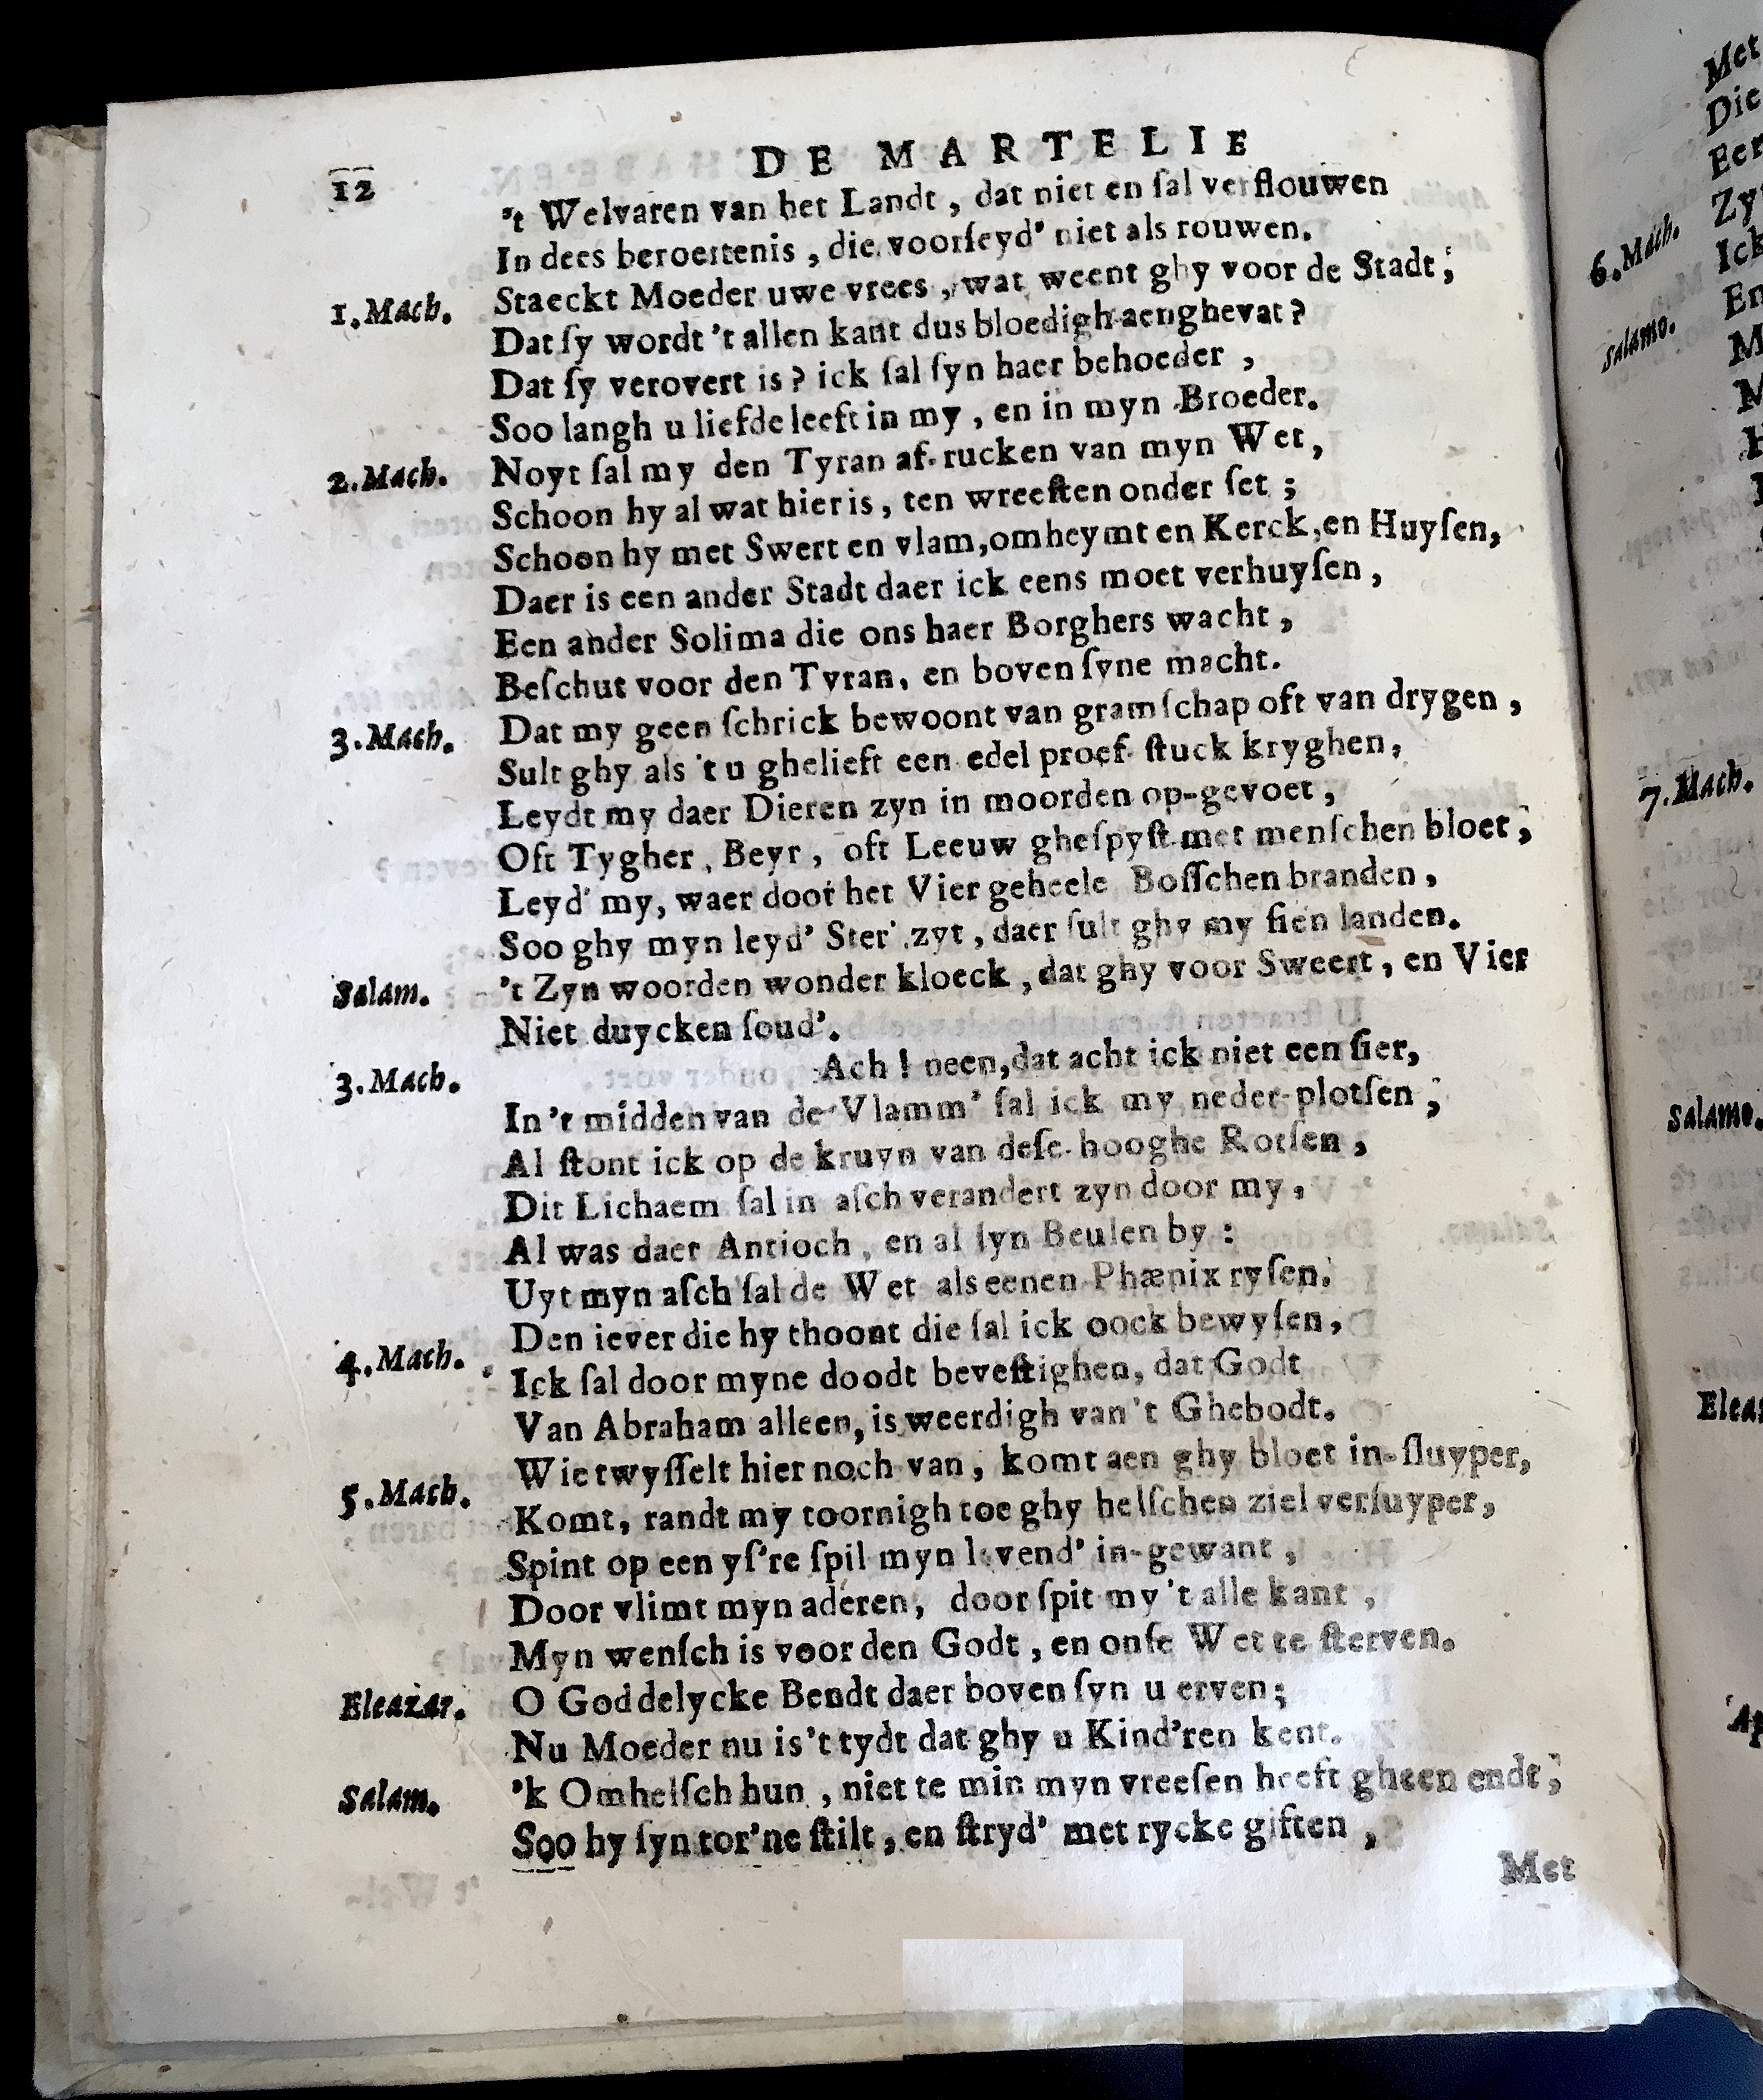 12
DE MARTELIE
't Welvaren van het Landt, dat niet en ſal verflouwen
In dees beroertenis, die voorſeyd' niet als rouwen.
1. Mach. Staeckt Moeder uwe vrees, wat weent ghy voor de Stadt;
Dat ſy wordt 't allen kant dus bloedigh aenghevat?
Dat ſy verovert is? ick ſal ſyn haer behoeder,
Soo langh u liefde leeft in my, en in myn Broeder.
2. Mach. Noyt ſal my den Tyran af-rucken van myn Wet,
Schoon hy al wat hier is, ten wreeſten onder ſet;
Schoon hy met Swert en vlam, omheymt en Kerck, en Huyſen,
Daer is een ander Stadt daer ick eens moet verhuyſen,
Een ander Solima die ons haer Borghers wacht,
Beſchut voor den Tyran, en boven ſyne macht.
3. Mach. Dat my geen ſchrick bewoont van gramſchap oft van drygen,
Sult ghy als 't u ghelieft een edel proef-ſtuck kryghen,
Leydt my daer Dieren zyn in moorden op-gevoet,
Oft Tygher, Beyr, oft Leeuw gheſpyſt met menſchen bloet;
Leyd' my, waer door het Vier geheele Boſſchen branden,
Soo ghy myn leyd' Ster' zyt, daer ſult ghy my ſien landen.
Salam. 't Zyn woorden wonder kloeck, dat ghy voor Sweert, en Vier
Niet duycken ſoud'.
3. Mach. Ach! neen, dat acht ick niet een ſier,
In 't midden van de Vlamm' ſal ick my neder-plotſen;
Al ſtont ick op de kruyn van deſe hooghe Rotſen,
Dit Lichaem ſal in aſch verandert zyn door my,
Al was daer Antioch, en al ſyn Beulen by:
Uyt myn aſch ſal de Wet als eenen Phænix ryſen.
4. Mach. Den iever die hy thoont die ſal ick oock bewyſen,
Ick ſal door myne doodt beveſtighen, dat Godt
Van Abraham alleen, is weerdigh van 't Ghebodt.
5. Mach. Wie twyffelt hier noch van, komt aen ghy bloet in-ſluyper,
Komt, randt my toornigh toe ghy helſchen ziel verſuyper,
Spint op een yſ're ſpil myn levend' in-gewant,
Door vlimt myn aderen, door ſpit my 't alle kant,
Myn wenſch is voor den Godt, en onſe Wet te ſterven.
Eleazar. O Goddelycke Bendt daer boven ſyn u erven;
Nu Moeder nu is 't tydt dat ghy u Kind'ren kent.
Salam. 'k Omhelſch hun, niet te min myn vreeſen heeft gheen endt;
Soo hy ſyn tor'ne ſtilt, en ſtryd' met rycke giften,
Met
Met
Die
Zy
6. Mach. Ick
Salamo.
7. Mach.
Salamo.